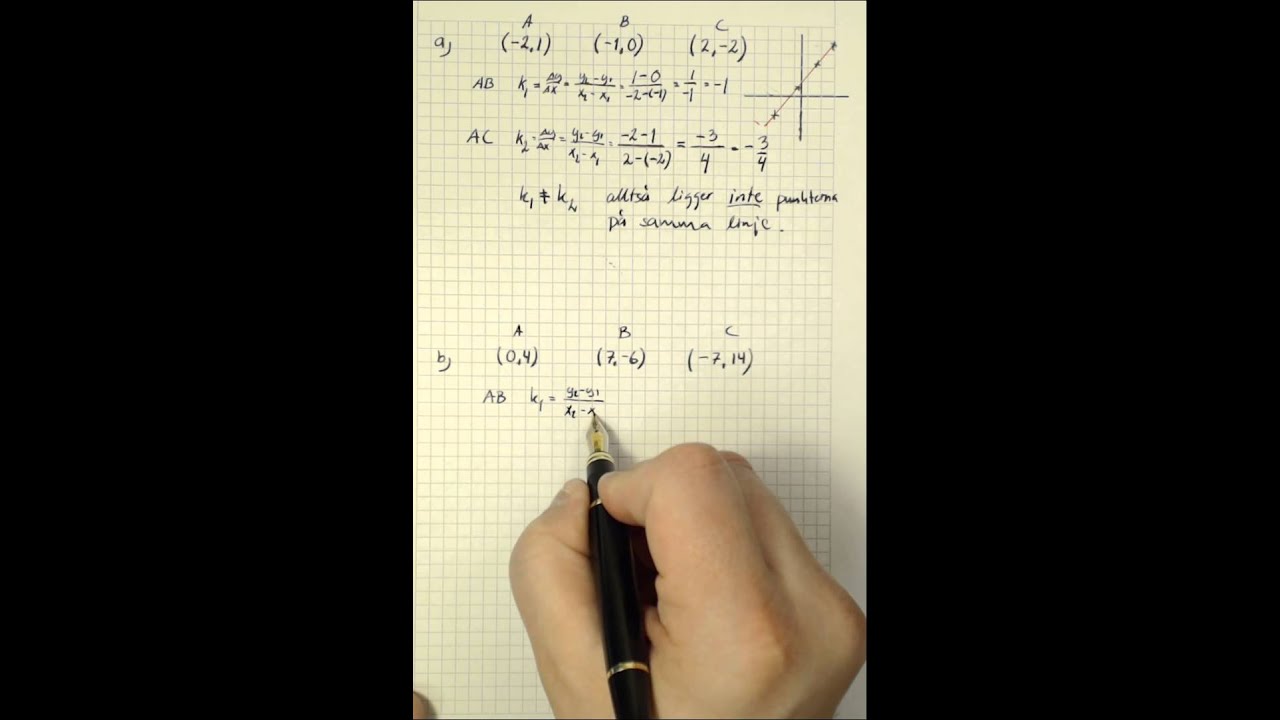 A B C
a) (-2,1) (-1,0) (2,-2)
AB k₁ = Δy/Δx = y₂-y₁/x₂-x₁ = 1-0/-2-(-1) = 1/-1 = -1
AC k₂ = Δy/Δx = y₂-y₁/x₂-x₁ = -2-1/2-(-2) = -3/4 = -3/4
k₁ ≠ k₂ alltså ligger inte punkterna
på samma linje.
A B C
b) (0,4) (7,-6) (-7,14)
AB k₁ = y₂-y₁/x₂-x